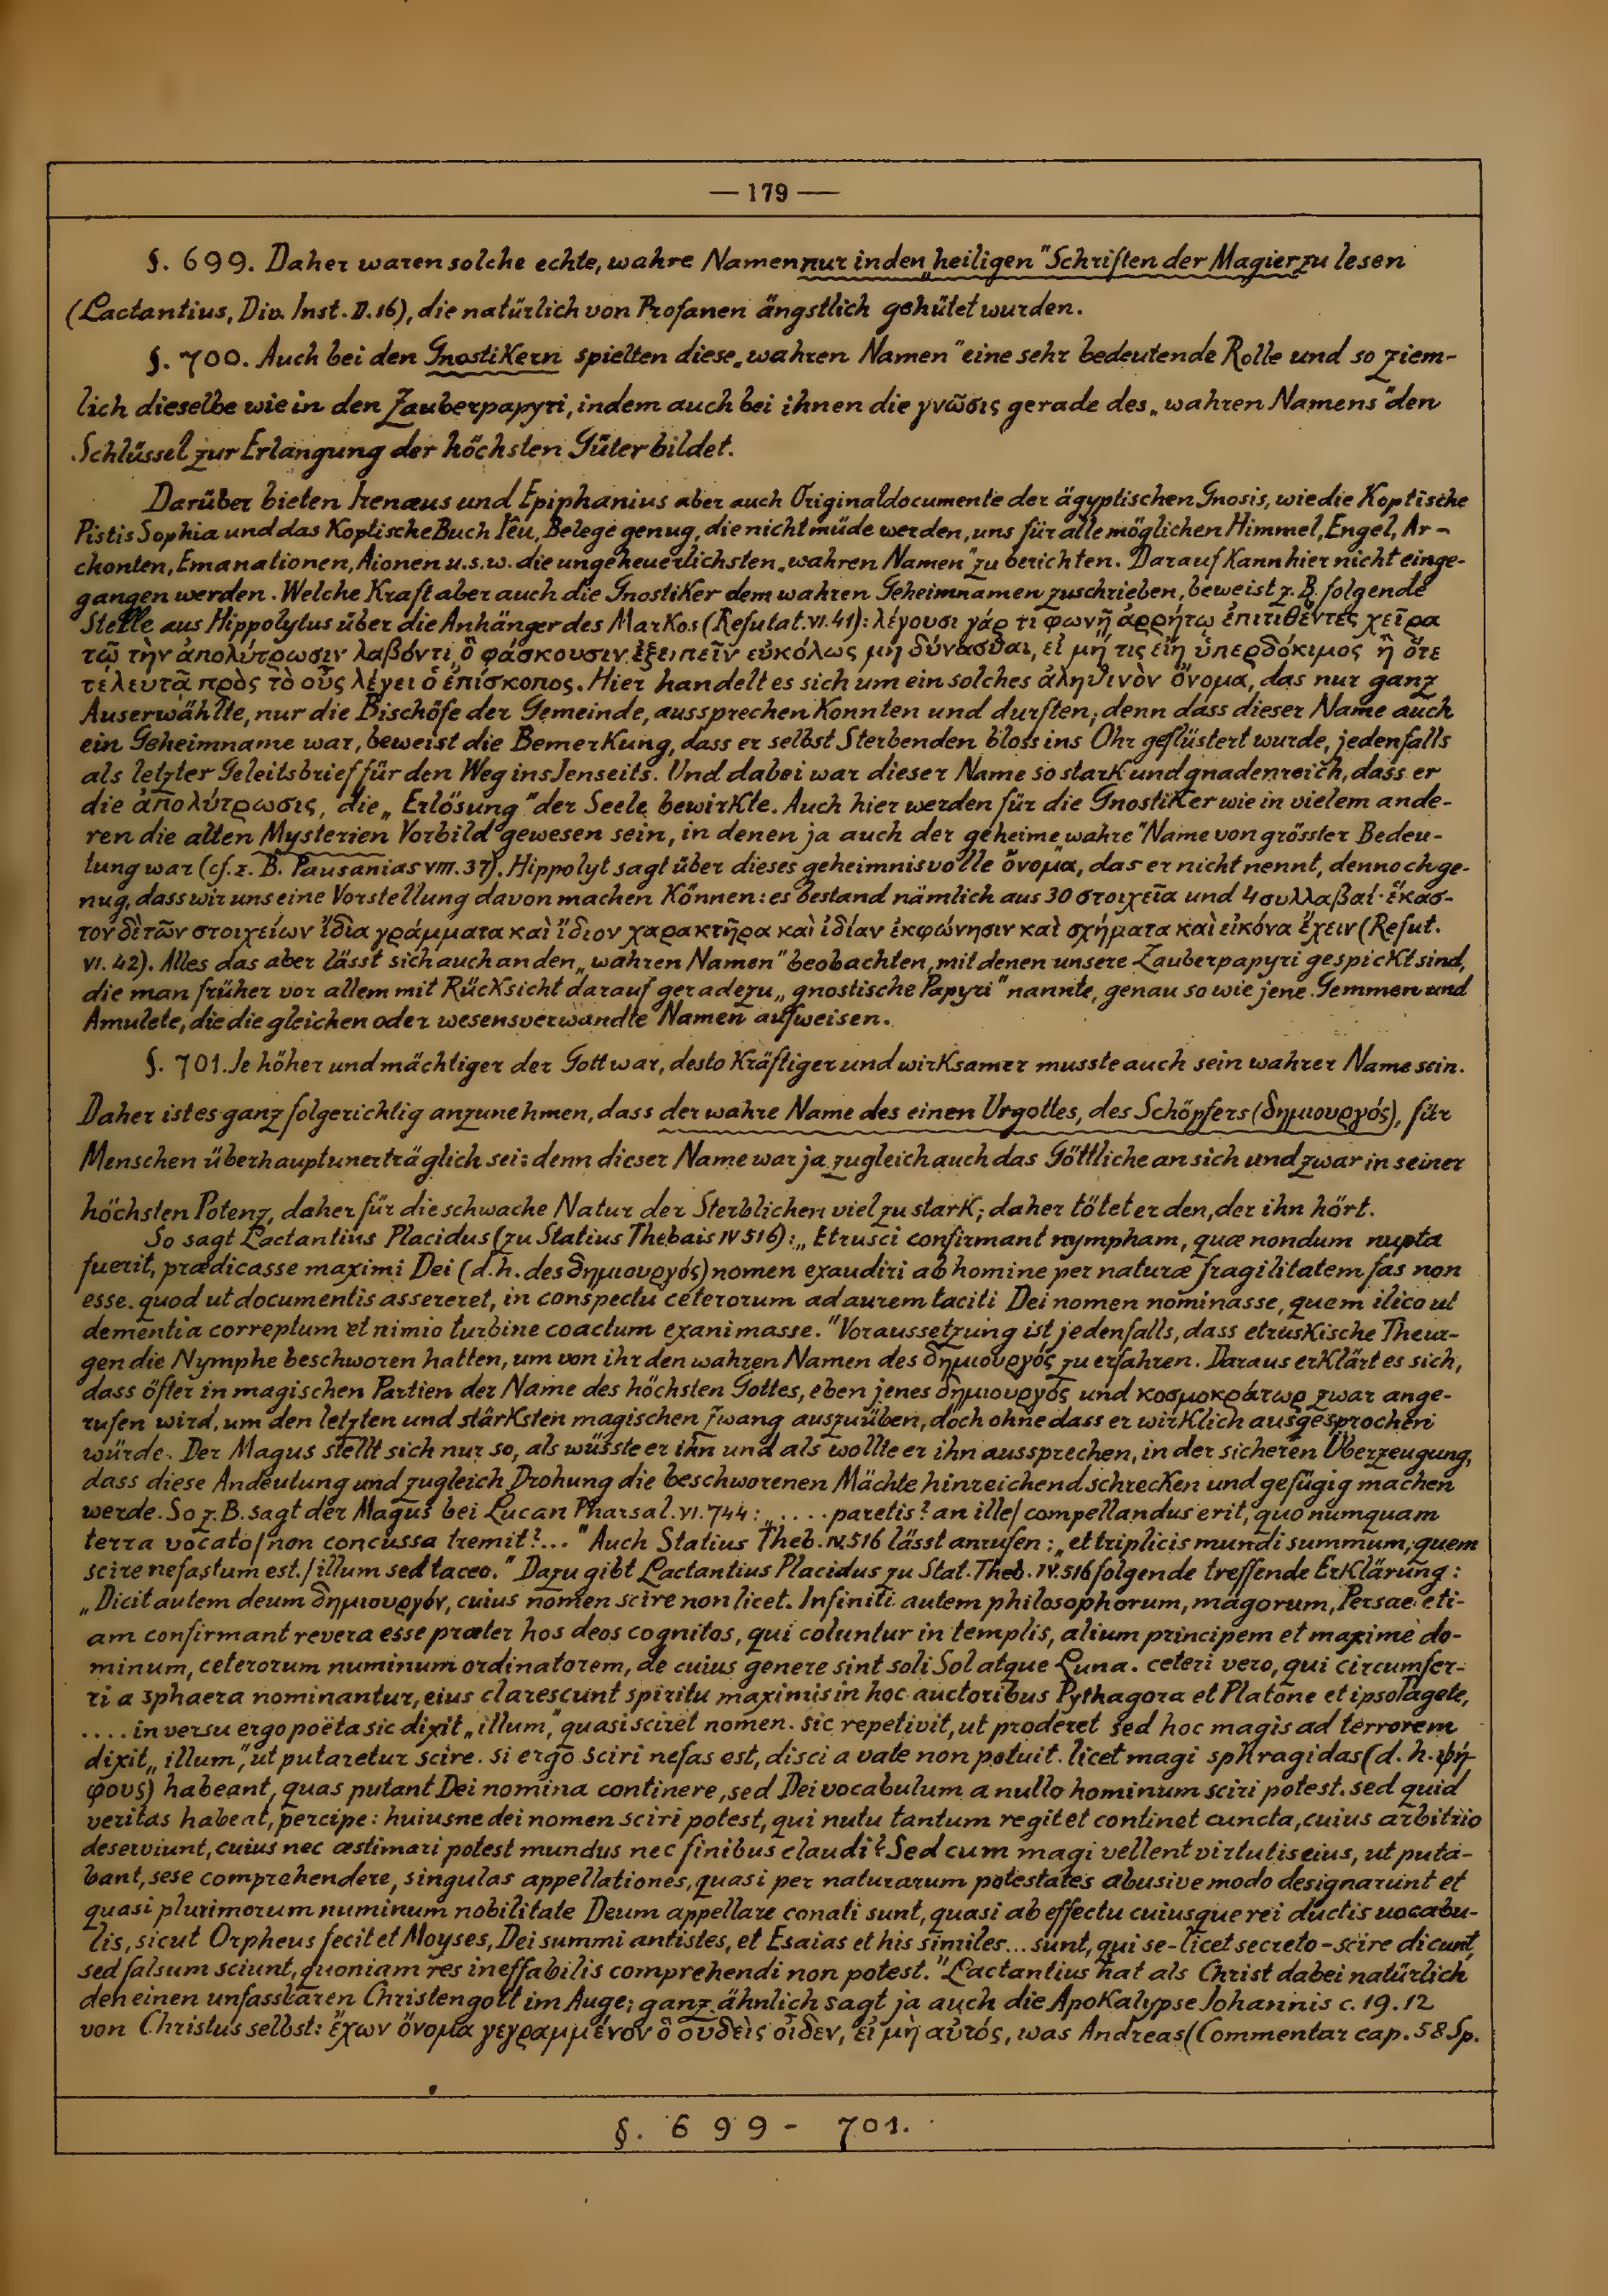 — 179 —
§. 699. Daher waren solche echte, wahre Namen nur in den „heiligen" Schriften der Magier zu lesen
(Lactantius, Div. Inst. II. 16), die natürlich von Profanen ängstlich gehütet wurden.
§. 700. Auch bei den Gnostikern spielten diese „wahren Namen" eine sehr bedeutende Rolle und so ziem-
lich dieselbe wie in den Zauberpapyri, indem auch bei ihnen die γνῶσις gerade des „wahren Namens" den
Schlüssel zur Erlangung der höchsten Güter bildet.
Darüber bieten Irenæus und Epiphanius aber auch Originaldocumente der ägyptischen Gnosis, wie die Koptische
Pistis Sophia und das Koptische Buch Iêu, Belege genug, die nicht müde werden, uns für alle möglichen Himmel, Engel, Ar-
chonten, Emanationen, Aionen u.s.w. die ungeheuerlichsten „wahren Namen" zu berichten. Darauf kann hier nicht einge-
gangen werden. Welche Kraft aber auch die Gnostiker dem wahren Geheimnamen zuschrieben, beweist z. B. folgende
Stelle aus Hippolytus über die Anhänger des Markos (Refutat. VI. 41): λέγουσι γάρ τι φωνῇ ἀρρήτῳ ἐπιτιθέντες χεῖρα
τῷ τὴν ἀπολύτρωσιν λαβόντι, ὃ φάσκουσιν ἐξειπεῖν εὐκόλως μὴ δύνασθαι, εἰ μή τις εἴη ὑπερδόκιμος ἢ ὅτε
τελευτᾷ πρὸς τὸ οὖς λέγει ὁ ἐπίσκοπος. Hier handelt es sich um ein solches ἀληθινὸν ὄνομα, das nur ganz
Auserwählte, nur die Bischöfe der Gemeinde, aussprechen konnten und durften; denn dass dieser Name auch
ein Geheimname war, beweist die Bemerkung, dass er selbst Sterbenden bloss ins Ohr geflüstert wurde, jedenfalls
als letzter Geleitsbrief für den Weg ins Jenseits. Und dabei war dieser Name so stark und gnadenreich, dass er
die ἀπολύτρωσις, die „Erlösung" der Seele bewirkte. Auch hier werden für die Gnostiker wie in vielem ande-
ren die alten Mysterien Vorbild gewesen sein, in denen ja auch der geheime „wahre" Name von grösster Bedeu-
tung war (cf. z. B. Pausanias VIII. 37). Hippolyt sagt über dieses geheimnisvolle ὄνομα, das er nicht nennt, dennoch ge-
nug, dass wir uns eine Vorstellung davon machen können: es bestand nämlich aus 30 στοιχεῖα und 4 συλλαβαί· ἕκασ-
τον δὲ τῶν στοιχείων ἴδια γράμματα καὶ ἴδιον χαρακτῆρα καὶ ἰδίαν ἐκφώνησιν καὶ σχήματα καὶ εἰκόνα ἔχειν (Refut.
VI. 42). Alles das aber lässt sich auch an den „wahren Namen" beobachten, mit denen unsere Zauberpapyri gespickt sind,
die man früher vor allem mit Rücksicht darauf geradezu „gnostische Papyri" nannte, genau so wie jene Gemmen und
Amulete, die die gleichen oder wesensverwandte Namen aufweisen.
§. 701. Je höher und mächtiger der Gott war, desto kräftiger und wirksamer musste auch sein wahrer Name sein.
Daher ist es ganz folgerichtig anzunehmen, dass der wahre Name des einen Urgottes, des Schöpfers (δημιουργός), für
Menschen überhaupt unerträglich sei: denn dieser Name war ja zugleich auch das Göttliche an sich und zwar in seiner
höchsten Potenz, daher für die schwache Natur der Sterblichen viel zu stark; daher tötet er den, der ihn hört.
So sagt Lactantius Placidus (zu Statius Thebais IV 516): „Etrusci confirmant nympham, quæ nondum nupta
fuerit, prædicasse maximi Dei (d.h. des δημιουργός) nomen exaudiri ab homine per naturæ fragilitatem fas non
esse. quod ut documentis assereret, in conspectu ceterorum ad aurem taciti Dei nomen nominasse, quem ilico ut
dementia correptum et nimio turbine coactum exanimasse." Voraussetzung ist jedenfalls, dass etruskische Theur-
gen die Nymphe beschworen hatten, um von ihr den wahren Namen des δημιουργός zu erfahren. Daraus erklärt es sich,
dass öfter in magischen Partien der Name des höchsten Gottes, eben jenes δημιουργός und κοσμοκράτωρ zwar ange-
rufen wird, um den letzten und stärksten magischen Zwang auszuüben, doch ohne dass er wirklich ausgesprochen
würde. Der Magus stellt sich nur so, als wüsste er ihn und als wollte er ihn aussprechen, in der sicheren Überzeugung,
dass diese Andeutung und zugleich Drohung die beschworenen Mächte hinreichend schrecken und gefügig machen
werde. So z. B. sagt der Magus bei Lucan Pharsal. VI. 744: „.... paretis? an ille/ compellandus erit, quo numquam
terra vocato/ non concussa tremit?..." Auch Statius Theb. IV. 516 lässt anrufen: „et triplicis mundi summum, quem
scire nefastum est./ illum sed taceo." Dazu gibt Lactantius Placidus zu Stat. Theb. IV. 516 folgende treffende Erklärung:
„Dicit autem deum δημιουργόν, cuius nomen scire non licet. Infiniti autem philosophorum, magorum, Persae eti-
am confirmant revera esse præter hos deos cognitos, qui coluntur in templis, alium principem et maxime do-
minum, ceterorum numinum ordinatorem, de cuius genere sint soli Sol atque Luna. ceteri vero, qui circumfer-
ri a sphaera nominantur, eius clarescunt spiritu maximis in hoc auctoribus Pythagora et Platone et ipso Tagete,
.... in versu ergo poëta sic dixit „illum," quasi sciret nomen. sic repetivit, ut proderet sed hoc magis ad terrorem
dixit „illum", ut putaretur scire. si ergo sciri nefas est, disci a vate non potuit. licet magi sphragidas (d. h. ψή-
φους) habeant, quas putant Dei nomina continere, sed Dei vocabulum a nullo hominum sciri potest. sed quid
veritas habeat, percipe: huiusne dei nomen sciri potest, qui nutu tantum regit et continet cuncta, cuius arbitrio
deserviunt, cuius nec æstimari potest mundus nec finibus claudi? Sed cum magi vellent virtutis eius, ut puta-
bant, sese comprehendere, singulas appellationes, quasi per naturarum potestates abusive modo designarunt et
quasi plurimorum numinum nobilitate Deum appellare conati sunt, quasi ab effectu cuiusque rei ductis vocabu-
lis, sicut Orpheus fecit et Moyses, Dei summi antistes, et Esaias et his similes... sunt, qui se - licet secreto - scire dicunt,
sed falsum sciunt, quoniam res ineffabilis comprehendi non potest." Lactantius hat als Christ dabei natürlich
den einen unfassbaren Christengott im Auge; ganz ähnlich sagt ja auch die Apokalypse Johannis c. 19. 12
von Christus selbst: ἔχων ὄνομα γεγραμμένον ὃ οὐδεὶς οἶδεν, εἰ μὴ αὐτός, was Andreas (Commentar cap. 58 Sp.
§. 699 - 701.